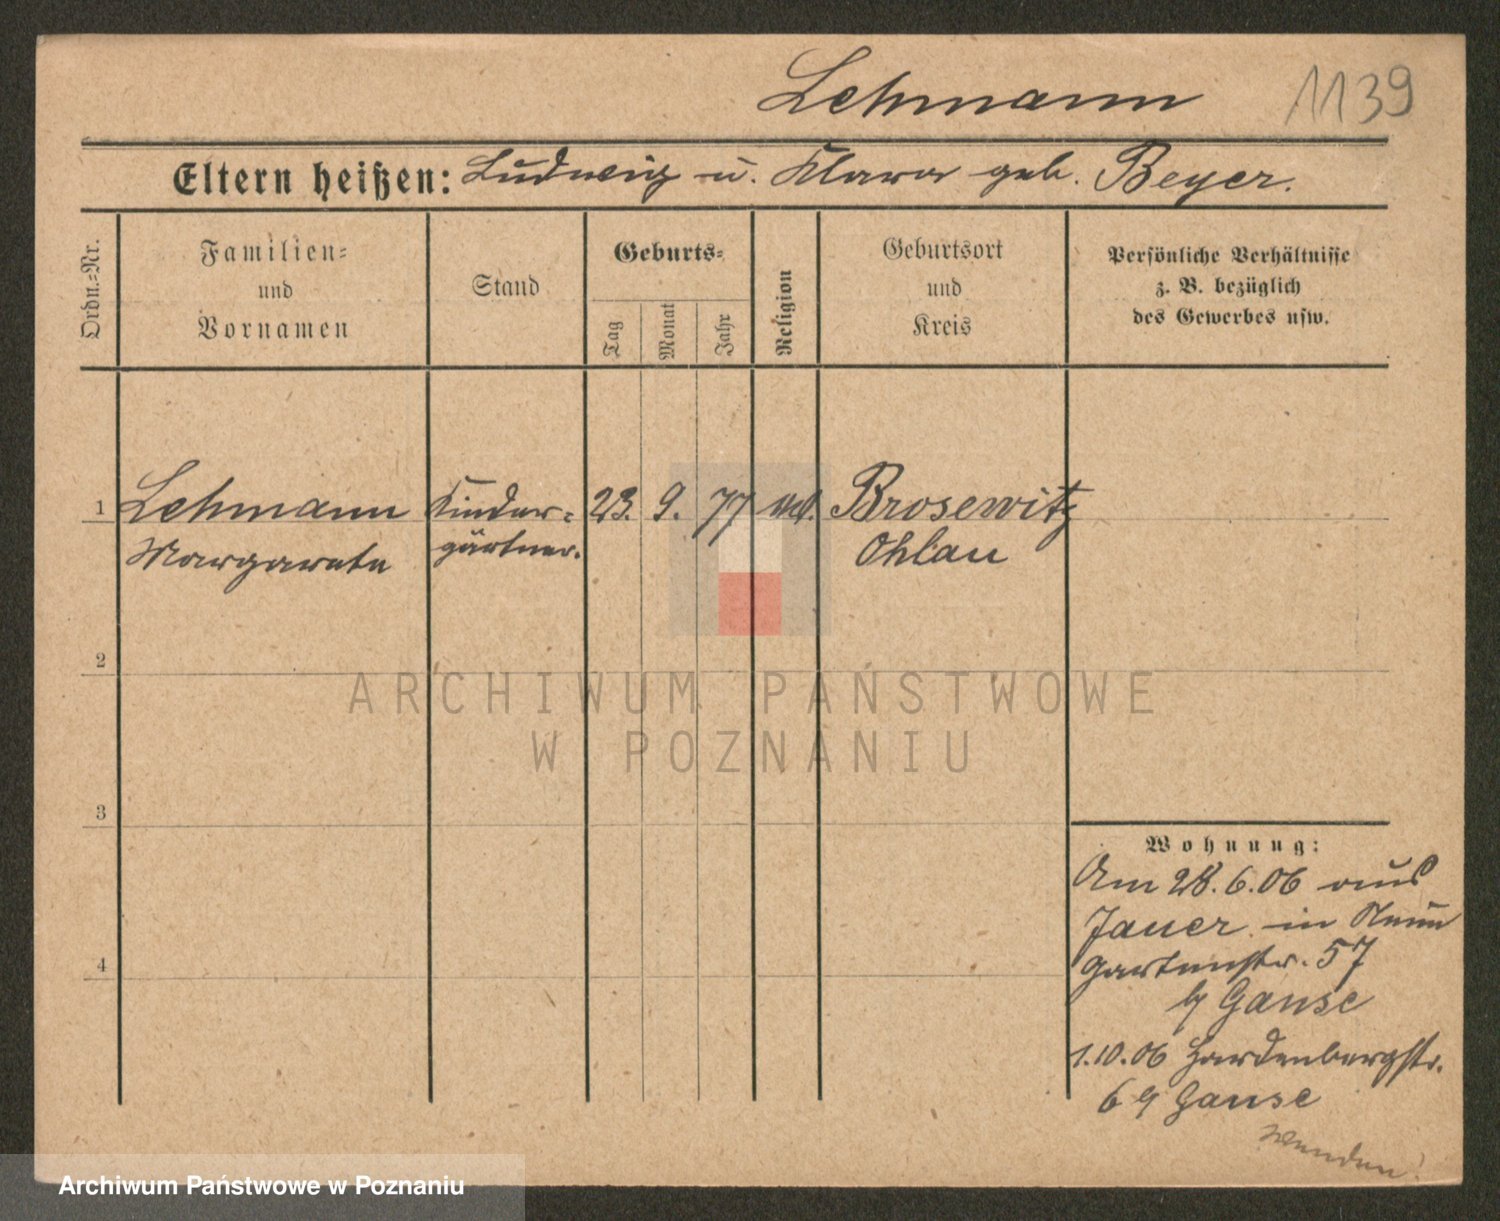 Lehmann 1139
Eltern heißen: Ludwig u. Klara geb. Beyer.
Ordn.=Nr.
Familien=
und
Vornamen
Stand
Geburts=
Tag
Monat
Jahr
Religion
Geburtsort
und
Kreis
Persönliche Verhältnisse
z. B. bezüglich
des Gewerbes usw.
1 Lehmann Kinder= 23. 9. 77 Brosewitz
Margarete gärtner. Ohlau
2
3
4
Wohnung:
Am 28.6.06 aus
Jauer in
Gartenstr. 57
Ganse
1.10.06 Hardenbergstr.
6 Ganse
wenden!
ARCHIWUM PAŃSTWOWE
W POZNANIU
Archiwum Państwowe w Poznaniu